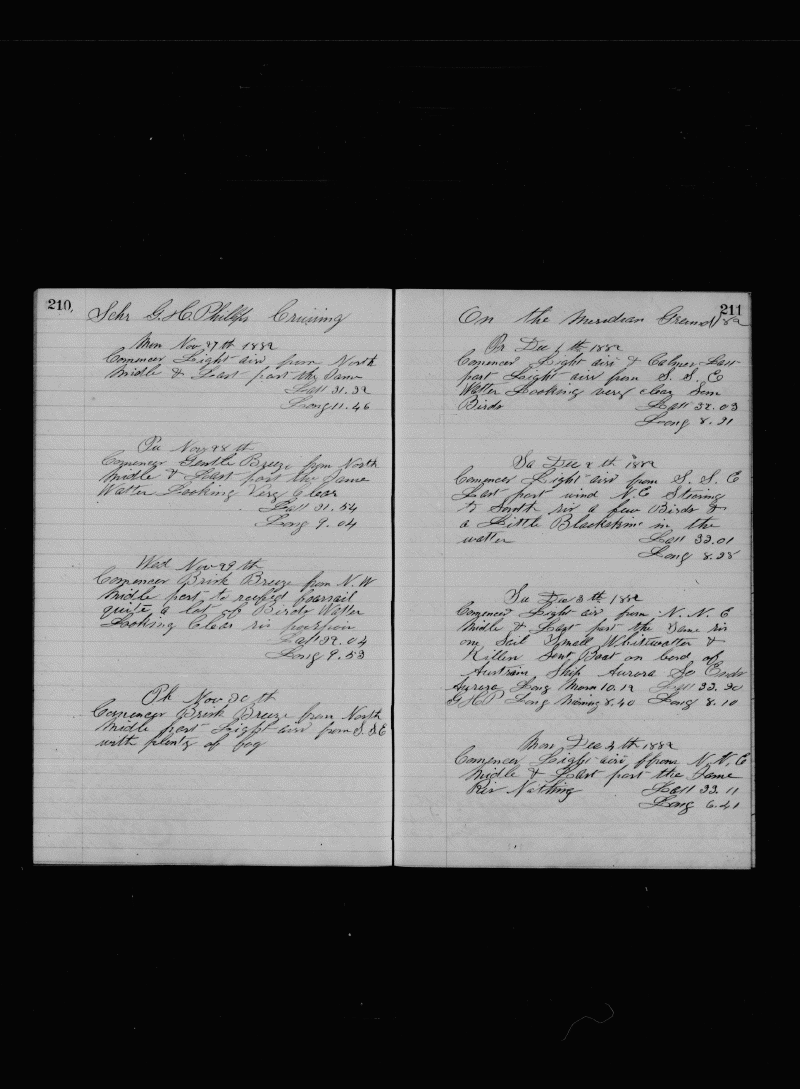 210,
Schr G. H. Philips Cruising
Mon Nov 27 th 1882
Comences Light airs from North
Midle & Last part the Same
Latt 31.32
Long 11.46
Tu Nov 28 th
Comences Gentle Breeze from North
Midle & Last part the Same
Watter Looking Very Clear
Latt 31.54
Long 9.04
Wed Nov 29 th
Comences Brisk Breeze from N. W
Midle part to reefed
quite a lot of Birds Watter
Looking Clear
Latt 32.04
Long 9.53
Th Nov 30 th
Comences Brisk Breeze from North
Midle part Light airs from S. S. E
with plenty of fog
211
On the Meridian Ground /82
Fr Dec 1 th 1882
Comences Light airs & Calmes Last
part Light airs from S. S. E
Watter Looking very clear Som
Birds Latt 32.03
Long 8.21
Sa Dec 2 th 1882
Comences Light airs from S. S. E
Last part wind N. E Stering
to South a few Birds &
a Little Blackskins in the
watter Latt 33.01
Long 8.25
Su Dec 3 th 1882
Comences Light airs from N. N. E
Midle & Last part the Same
on Sail Small Whitewatter &
Killers Sent Boat on bord of
Austrain Ship Aurora
Long 10.12 Latt 33.20
G H P Long 8.40 Long 8.10
Mon Dec 4 th 1882
Comences Light airs from N. N. E
Midle & Last part the Same
Nothing Latt 33.11
Long 6.41